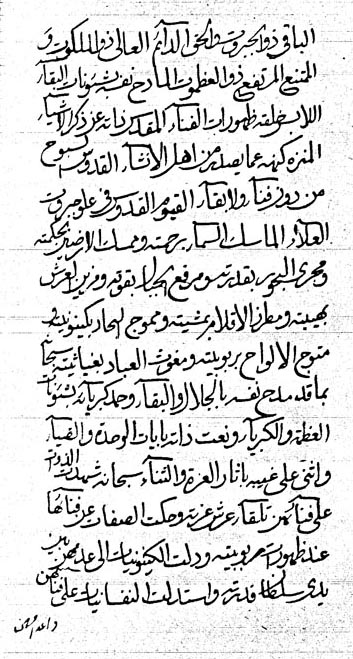 الباقی ذو الجبروت والحی الدائم العالی ذو الملکوت و
الممتنع المرتفع ذو العظموت المادح نفسه بشئونات البقاء
خلقه ظهورات الفناء المقدس ذاته عن ذکر الاشیاء
المنزه کنهه عما یصدر من اهل الانشاء القدوس السبوح
من دون فناء والابقاء القیوم القدس فی علو جبروت
العلاء الماسك السماء برحمته وممسك الارضین بحکمته
ومجری البحور بقدرته ومرفع الجبال بقوته ومزین العرش
بهیبته ومطرز الاقلام بمشیته ومموج البحار بکینونیته
متوج الالواح بربوبیته ومغوث العباد بغیاثیته سبحانه
بما قد مدح نفسه بالجلال والبقاء وحمد کبریائه بشئونات
العظمة والکبریاء ونعت ذاته بایات الوحدة والضیاء
واثنی علی غیبه باثار العزة والثناء سبحانه شهدت الذوات
علی فنائهن تلقاء عرش عزته وحکت الصفات عن فنائها
عند ظهورات ربوبیته ودلت الکینونیات الی عدمهن بین
یدی سلطان قدرته واستدلت النفسانیات علی فنائهن